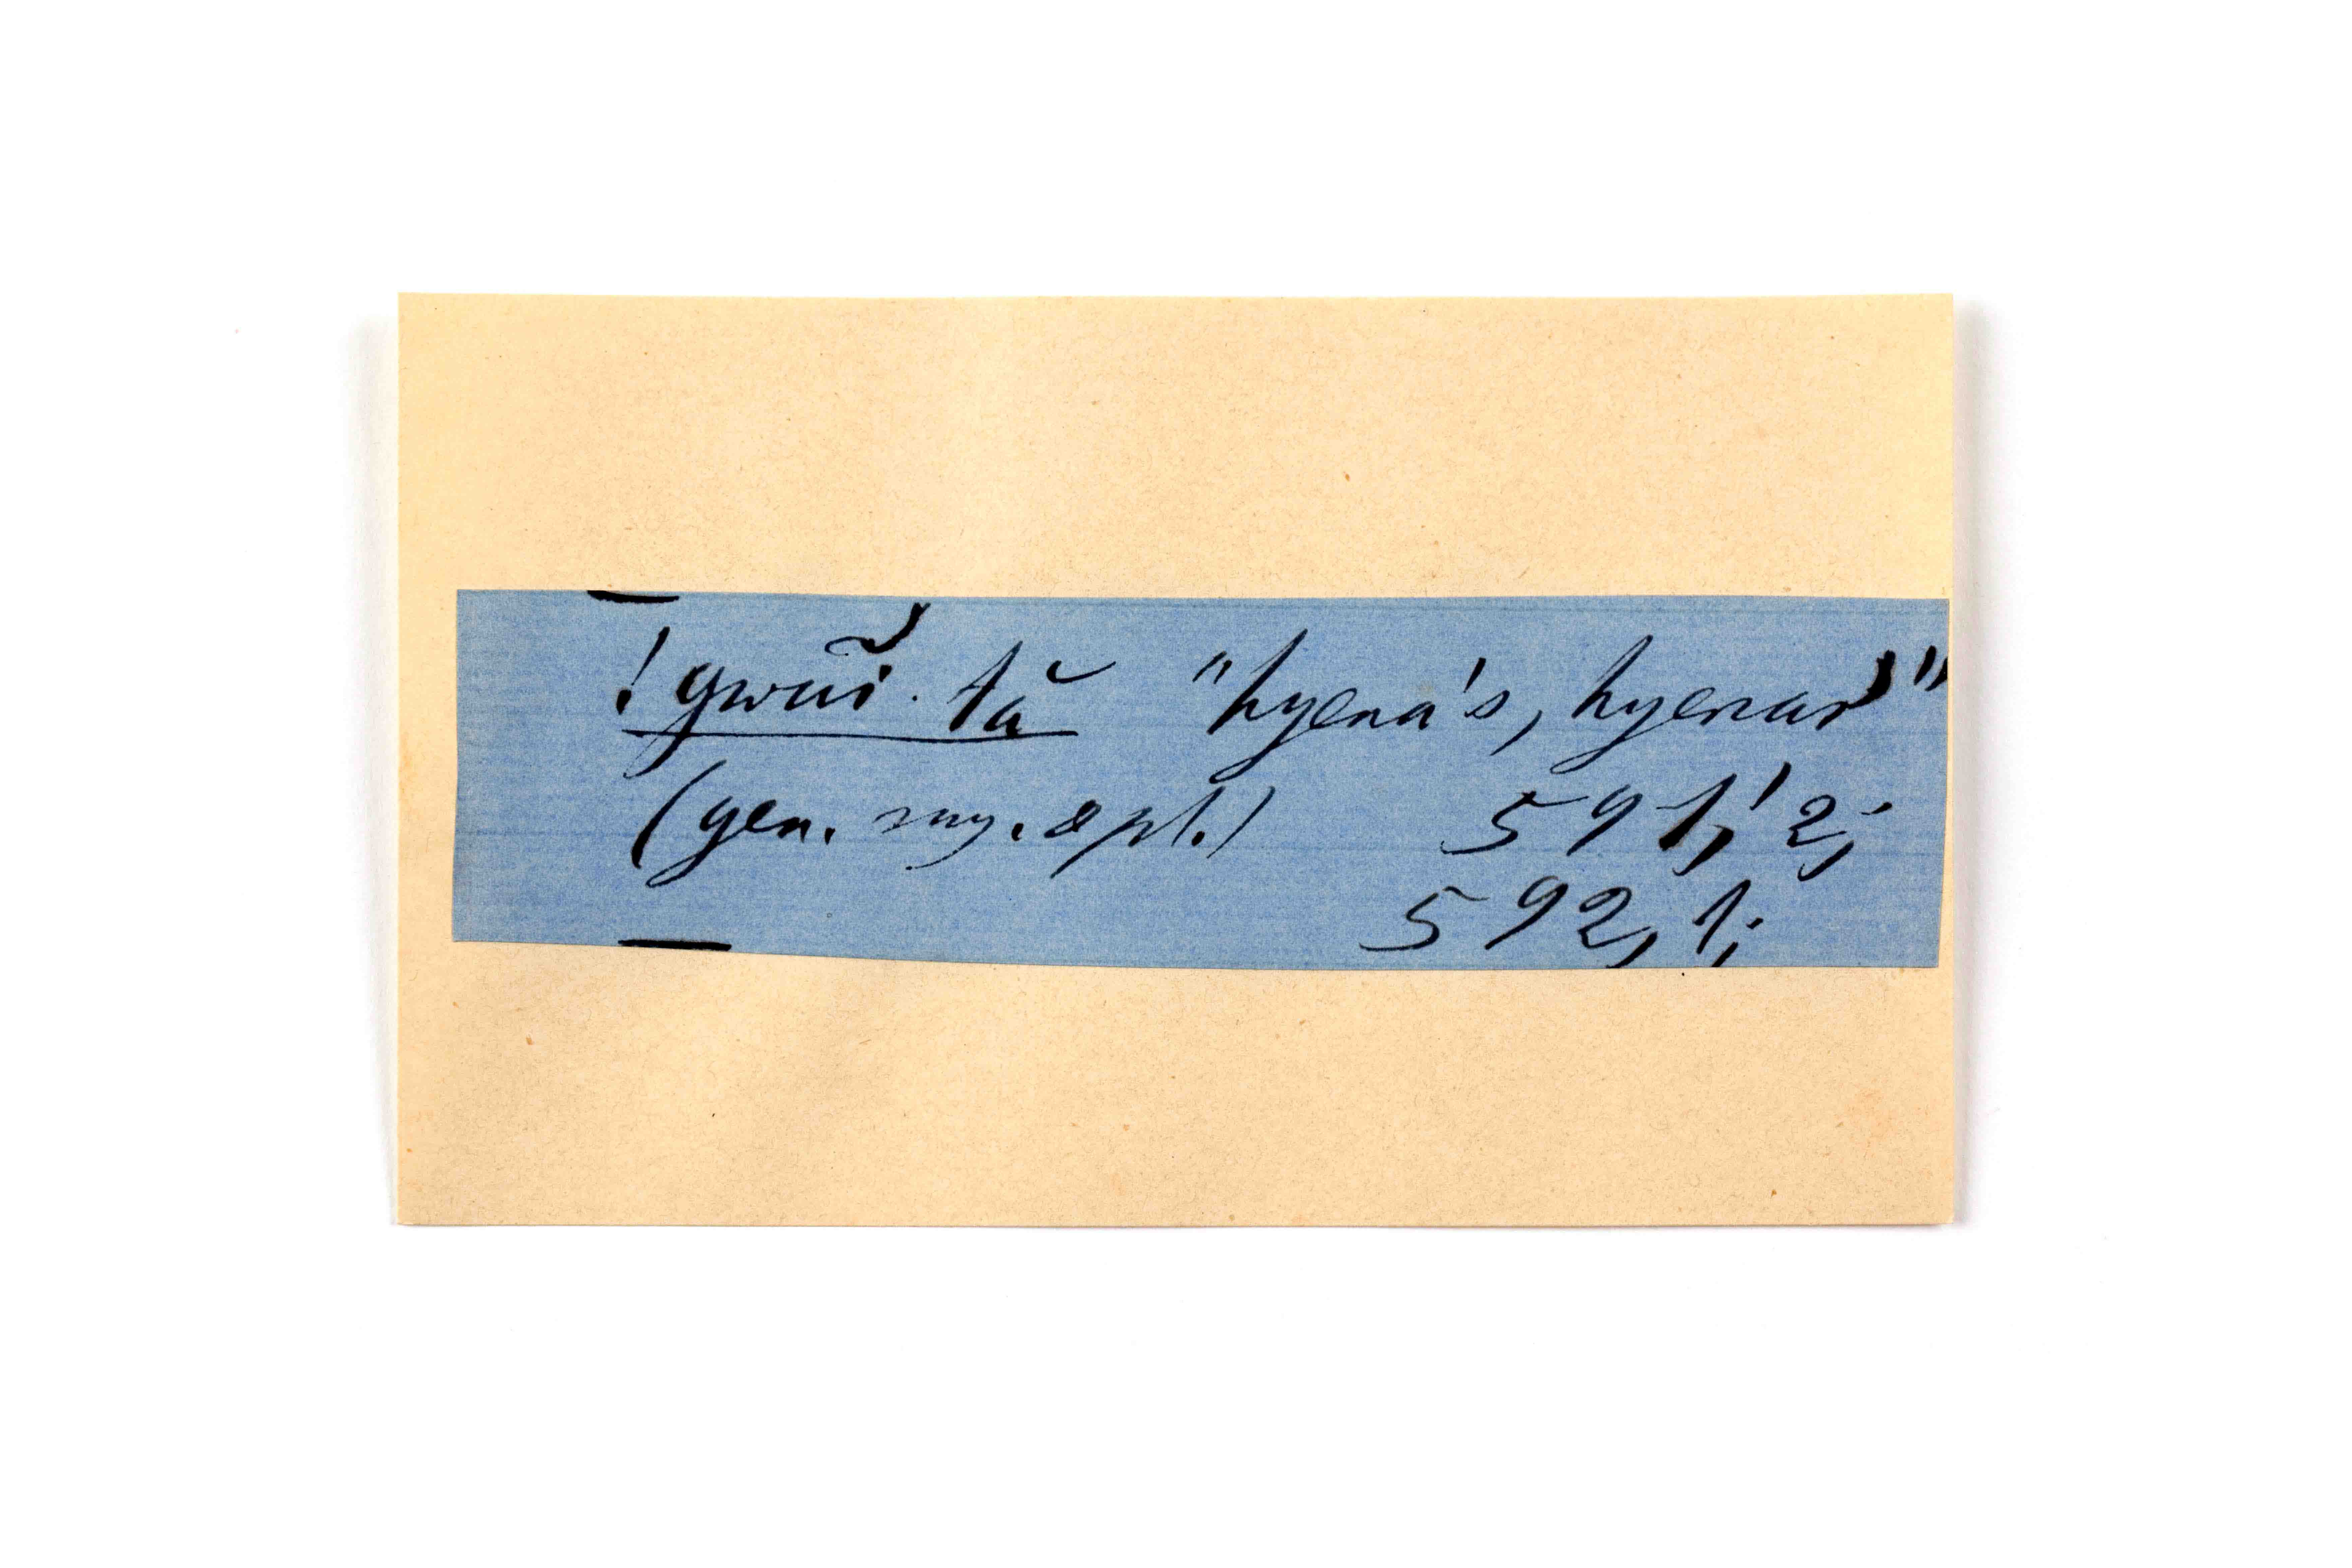 !gwãĩ·tă "hyena's, hyenas'"
(gen. sing. & pl.) 591,' 2;
592, 1;